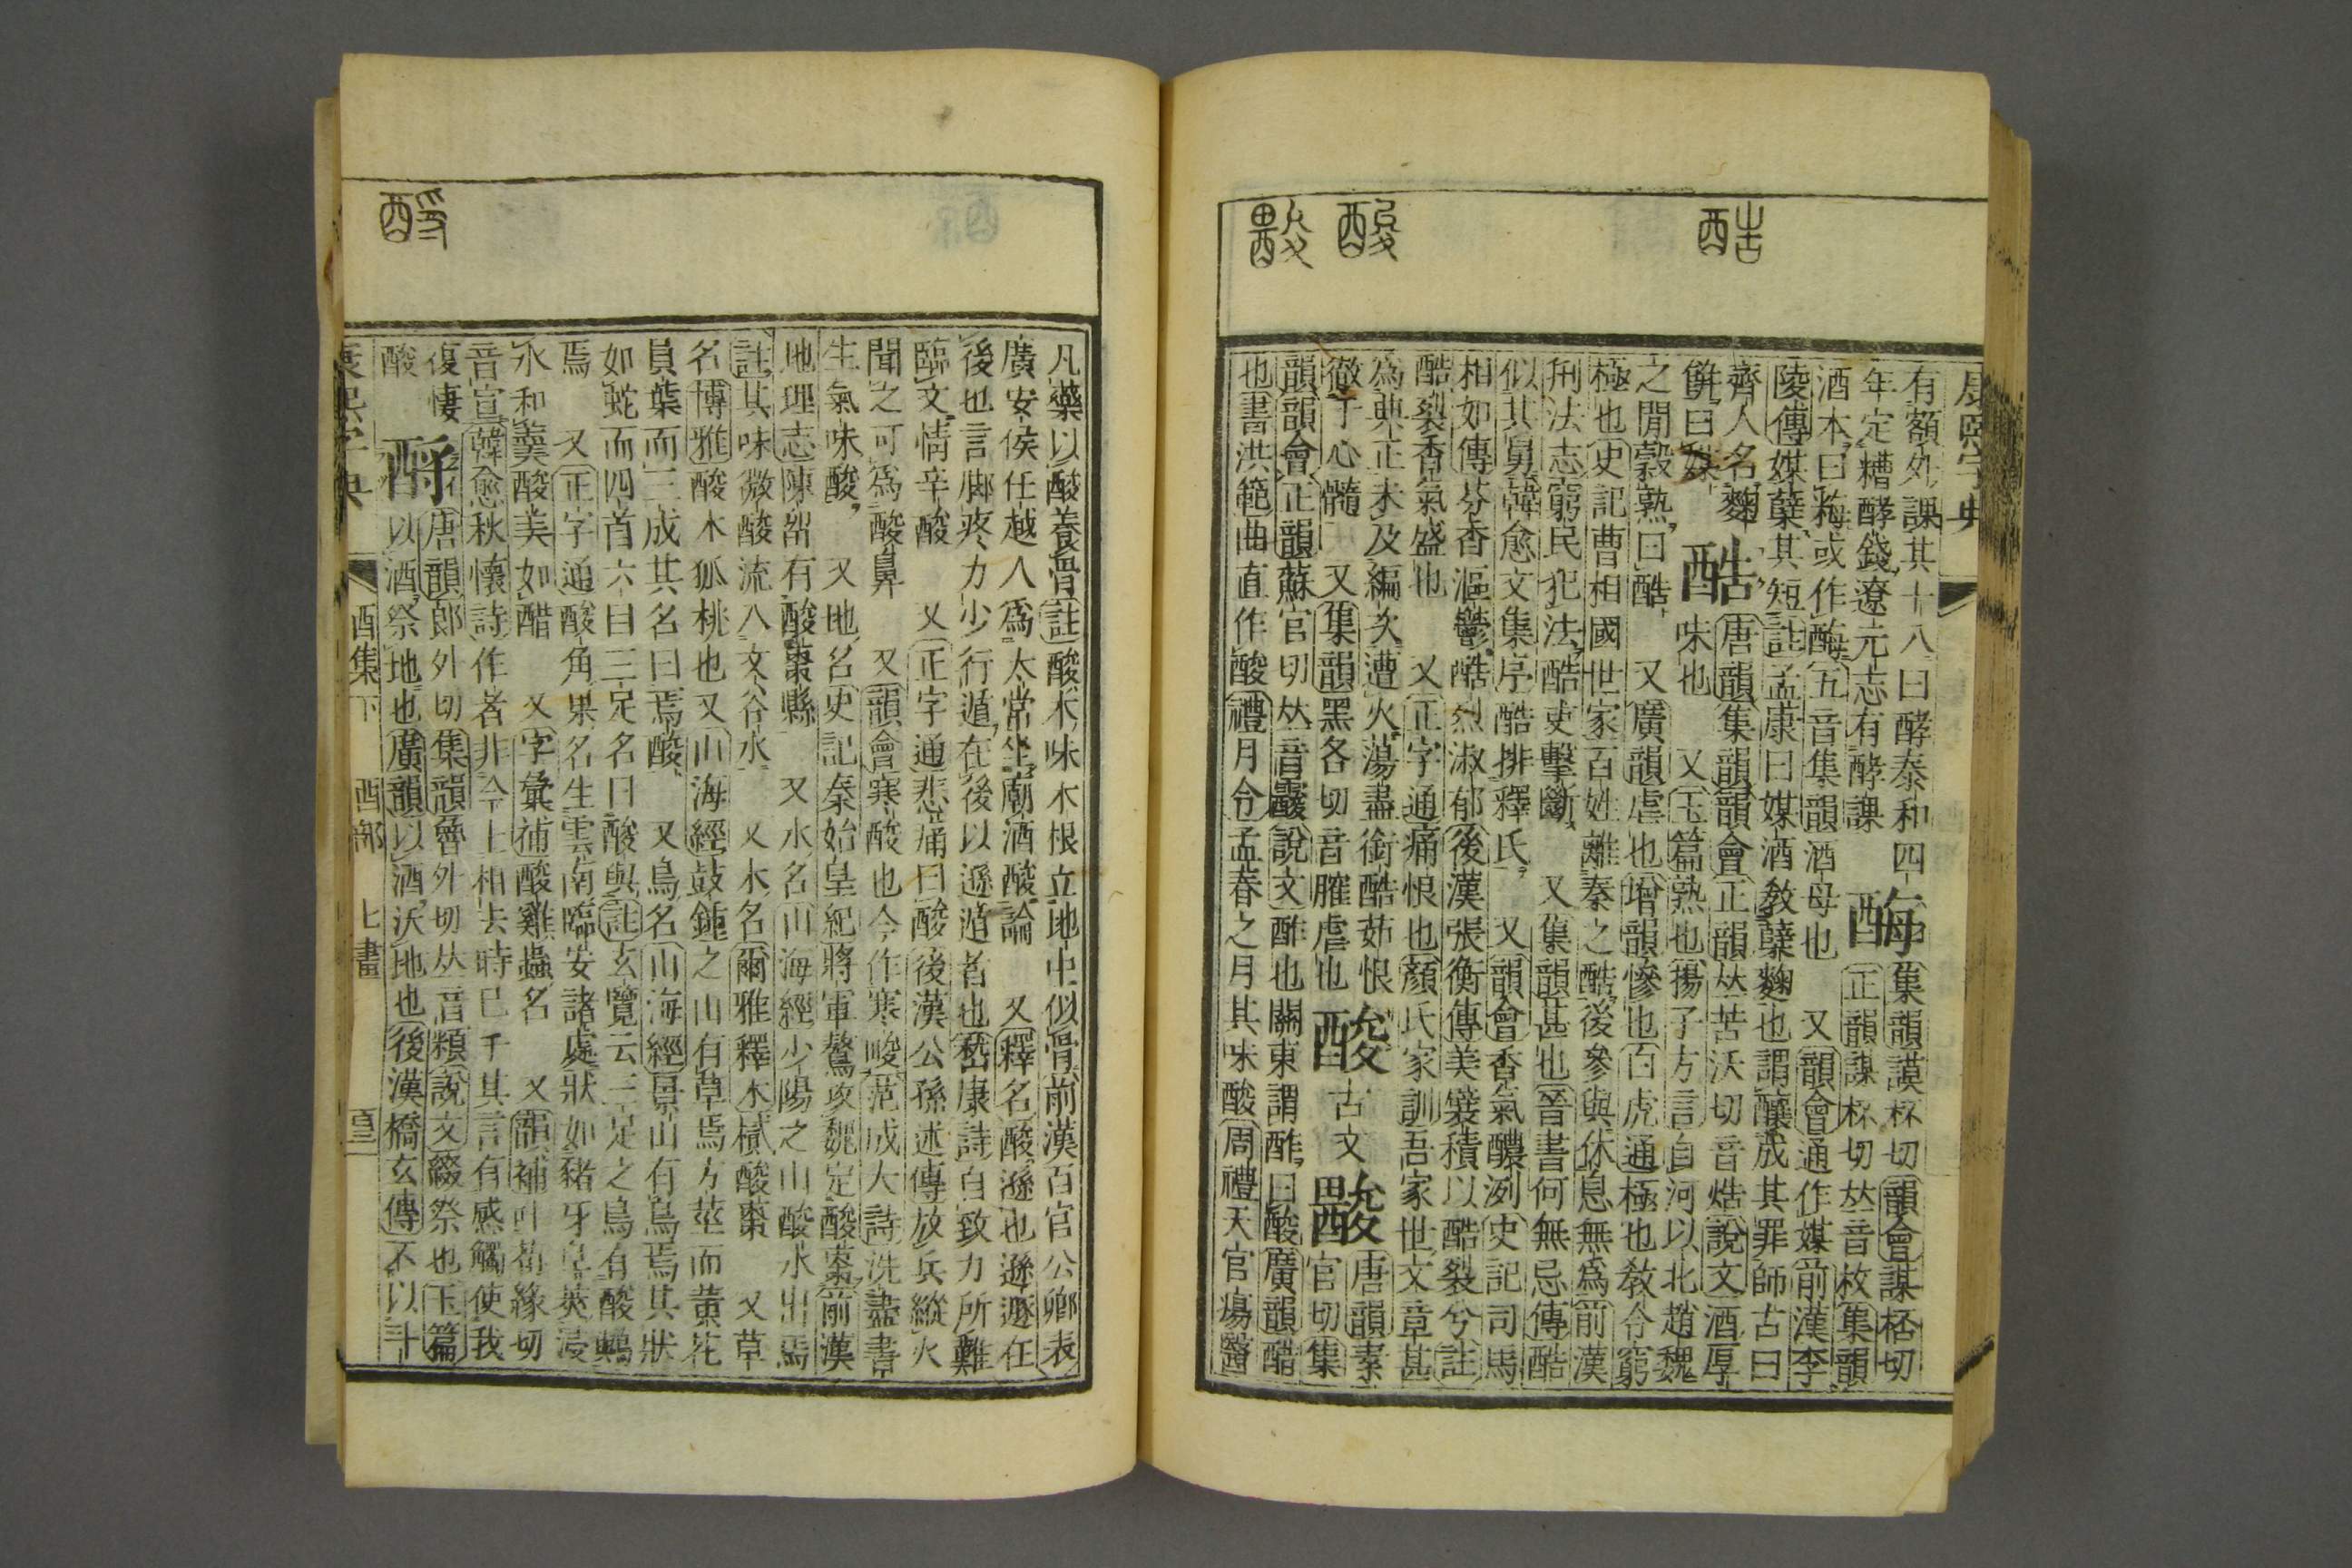 康熙字典
酷
酸
有額外課其十八曰酵泰和四
年定糟酵錢遼元志有酵課
酶
集韻謨杯切韻會謀桮切
正韻謀杯切𠀤音枚集韻
酒本曰䊈或作酶五音集韻酒母也 又韻會通作媒前漢李
陵傳媒糵其短註孟康曰媒酒敎糵麴也謂釀成其罪師古曰
齊人名麴
餠曰媒
酷
唐韻集韻韻會正韻𠀤苦沃切音焅說文酒厚
味也 又玉篇熟也揚子方言自河以北趙魏
之閒穀熟曰酷 又廣韻虐也增韻慘也白虎通極也敎令窮
極也史記曹相國世家百姓離秦之酷後參與休息無爲前漢
刑法志窮民犯法酷吏擊斷 又集韻甚也晉書何無忌傳酷
似其舅韓愈文集序酷排釋氏 又韻會香氣醲洌史記司馬
相如傳芬香漚鬱酷烈淑郁後漢張衡傳美襞積以酷裂兮註
酷裂香氣盛也 又正字通痛恨也顏氏家訓吾家世文章甚
爲典正未及編次遭火蕩盡銜酷茹恨
徹于心髓 又集韻黑各切音臛虐也
酸
古文
唐韻素
官切集
韻韻會正韻蘇官切𠀤音霰說文酢也關東謂酢曰酸廣韻醋
也書洪範曲直作酸禮月令孟春之月其味酸周禮天官瘍醫
凡藥以酸養骨註酸木味木根立地中似骨前漢百官公卿表
廣安侯任越人爲太常坐廟酒酸論 又釋名酸遜也遜遯在
後也言脚疼力少行遁在後以遜遁者也嵇康詩自致力所難
臨文情辛酸 又正字通悲痛曰酸後漢公孫述傳放兵縱火
聞之可爲酸鼻 又韻會寒酸也今作寒畯范成大詩洗盡書
生氣味酸 又地名史記秦始皇紀將軍驁攻魏定酸棗前漢
地理志陳畱有酸棗縣 又水名山海經少陽之山酸水出焉
註其味微酸流入文谷水 又木名爾雅釋木樲酸棗 又草
名博雅酸木狐桃也又山海經鼓鍾之山有草焉方莖而黃花
員葉而三成其名曰焉酸 又鳥名山海經景山有鳥焉其狀
如蛇而四首六目三足名曰酸與註玄覽云三足之鳥有酸鷯
焉 又正字通酸角果名生雲南臨安諸處狀如豬牙皁莢浸
水和羹酸美如醋 又字彙補酸雞蟲名 又韻補叶荀緣切
音宣韓愈秋懷詩作者非今士相去時已千其言有感觸使我
復悽
酸
酹
唐韻郎外切集韻魯外切𠀤音纇說文餟祭也玉篇
以酒祭地也廣韻以酒沃地也後漢橋玄傳不以斗
酉集下 酉部 七畫